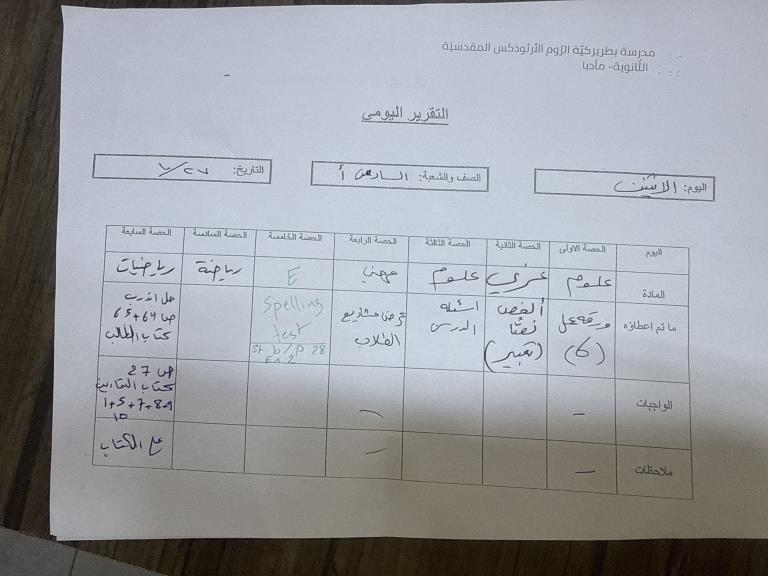 مدرسة بطريركيّة الرّوم الأرثوذكس المقدسيّة
الثّانوية- مأدبا
التقرير اليومي
اليوم: الاثنين
الصف والشعبة: السادس أ
التاريخ: ٢٧/
اليوم الحصة الاولى الحصة الثانية الحصة الثالثة الحصة الرابعة الحصة الخامسة الحصة السادسة الحصة السابعة
المادة علوم عربي علوم مهني E رياضة رياضيات
ما تم اعطاؤه
ورقة عمل
(6)
ألخص
نصًّا
(تعبير)
اسئلة
الدرس
عرض مشاريع
الطلاب
Spelling
test
St b/P 28
Ex 2
حل اتدرب
ص 64+65
كتاب الطالب
الواجبات
–
–
ص 27
كتاب التمارين
1+5+7+8+9
10
ملاحظات
–
–
على الكتاب